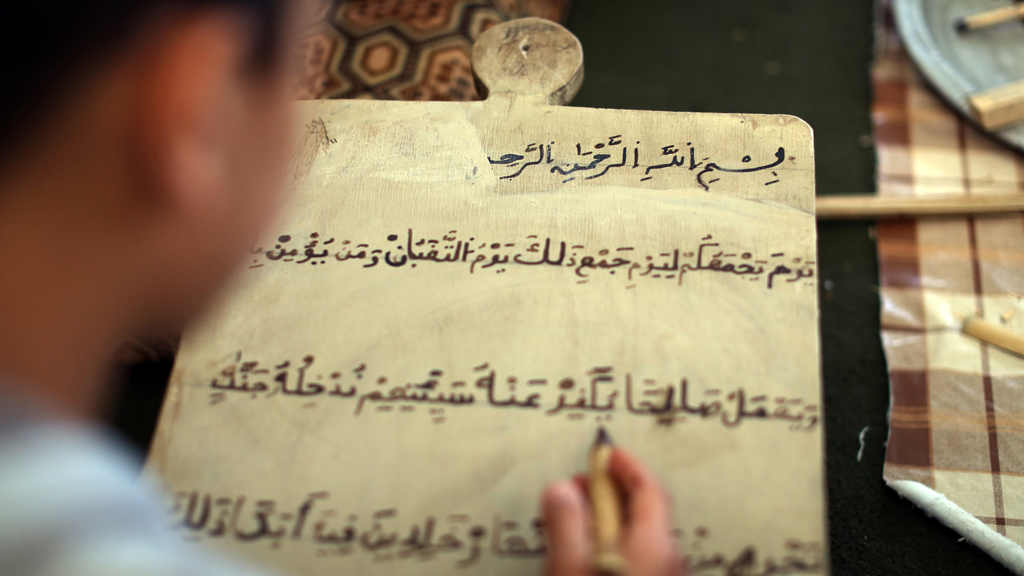 بِسْمِ اللَّهِ الرَّحْمَٰنِ الرَّحِ
يَوْمَ يَجْمَعُكُمْ لِيَوْمِ جَمْعِ ذَلِكَ يَوْمُ التَّغَابُنْ وَمَنْ يُؤْمِنْ
وَيَعْمَلْ صَالِحًا يُكَفِّرْ عَنْهُ سَيِّئَاتِهِمْ نُدْخِلْهُ جَنَّاتٍ
تَجْرِي مِنْ خَالِدِينَ فِيهَا أَبَدًا ذَلِكَ